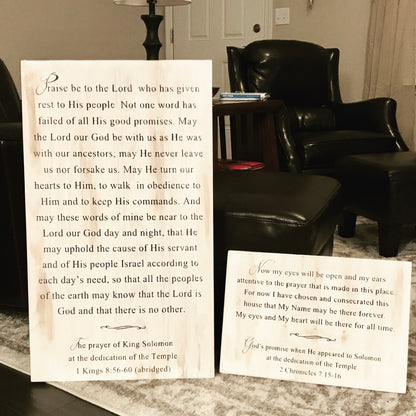 Praise be to the Lord who has given
rest to His people Not one word has
failed of all His good promises. May
the Lord our God be with us as He was
with our ancestors, may He never leave
us nor forsake us. May He turn our
hearts to Him, to walk in obedience to
Him and to keep His commands. And
may these words of mine be near to the
Lord our God day and night, that He
may uphold the cause of His servant
and of His people Israel according to
each day's need, so that all the peoples
of the earth may know that the Lord is
God and that there is no other.
The prayer of King Solomon
at the dedication of the Temple
1 Kings 8:56-60 (abridged)
Now my eyes will be open and my ears
attentive to the prayer that is made in this place.
For now I have chosen and consecrated this
house that My Name may be there forever.
My eyes and My heart will be there for all time.
God's promise when He appeared to Solomon
at the dedication of the Temple
2 Chronicles 7:15-16